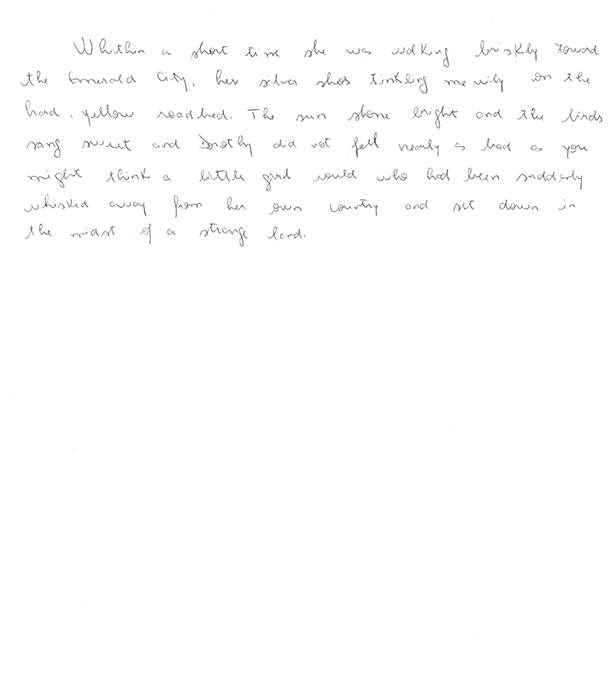 Whithin a short time she was walking briskly toward
the Emerald City, her silver shos tinkling merrily on the
hard, yellow roadbed. The sun shone bright and the birds
sang sweet and Dorothy did not fell nearly as bad as you
might think a little girl would who had been suddenly
whisked away from her own country and set down in
the midst of a strange land.